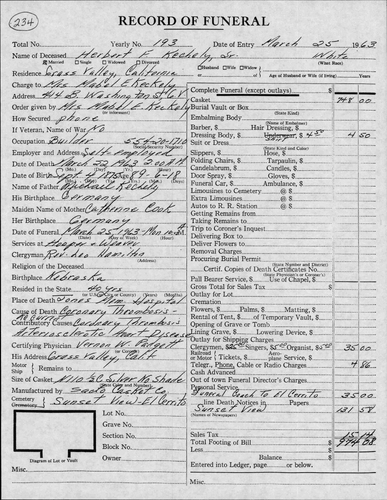 234
RECORD OF FUNERAL
Total No. Yearly No. 193 Date of Entry March 25 1963
Name of Deceased Herbert F. Keckely, Sr. White
Married Single Widowed Divorced (What Race)
Residence Grass Valley, California Husband Wife Widow of Age of Husband or Wife (if living) Years
Charge to Mrs Mabel E. Keckely
Address
Order given by Mrs Mabel E. Keckely
How Secured phone
If Veteran, Name of War No
Occupation Builder
Employer and Address Self employed
Date of Death March 22 1963 2:00 A M
Date of Birth Sept 4 1873 89-6-18
Name of Father Michael Keckely
His Birthplace Germany
Maiden Name of Mother Catherine Cook
Her Birthplace Germany
Date of Funeral March 25, 1963 Mon
Services at Hooper & Weaver
Clergyman Rev. Leo Hamilton
Religion of the Deceased
Birthplace Nebraska
Resided in the State 40 yrs
Place of Death Jones Mem Hospital
Cause of Death Coronary Thrombosis-
Contributory Causes Coronary Thrombosis
Arteriosclerotic Heart Disease
Certifying Physician Vernon W. Padgett
His Address Grass Valley, Calif
Motor Ship Remains to
Size of Casket
Manufactured by Casket Co
Cemetery Crematory Sunset View - El Cerrito
Lot No.
Grave No.
Section No.
Block No.
Owner
Diagram of Lot or Vault
Misc.
Complete Funeral (except outlays) $
Casket 748 00
Burial Vault or Box
(State Kind)
Embalming
(Name of Embalmer)
Barber, $ Hair Dressing, $
Dressing Body, $ 4 50
Suit or Dress
(State Kind and Color)
Slippers, $ Hose, $
Folding Chairs, $ Tarpaulin, $
Candelabrum, $ Candles, $
Door Spray, $ Gloves, $
Funeral Car, $ Ambulance, $
Limousines to Cemetery @ $
Extra Limousines @ $
Autos to R. R. Station @ $
Getting Remains from
Taking Remains to
Trip to Coroner's Inquest
Delivering Box to
Deliver Flowers to
Removal Charges
Procuring Burial Permit
(State Number and District)
Certif. Copies of Death Certificates No.
Pall Bearer Service, $ Use of Chapel, $
Gross Total for Sales Tax $
Outlay for Lot
Cremation
Flowers, $ Palms, $ Matting, $
Rental of Tent, $ of Temporary Vault, $
Opening of Grave or Tomb
Lining Grave, $ Lowering Device, $
Outlay for Shipping Charges
Clergymen, $ Singers, $ Organist, $ 35 00
Railroad or Motor Tickets, $ Aeroplane Service, $
Telegr., Phone, Cable or Radio Charges 4 86
Cash Advanced
Out of town Funeral Director's Charges
Personal Service
Funeral Coach to El Cerrito 35 00
line Death Notices in Papers
Sunset View 131 58
Sales Tax
Total Footing of Bill $
Less
Balance $
Entered into Ledger, page or below.
Misc.